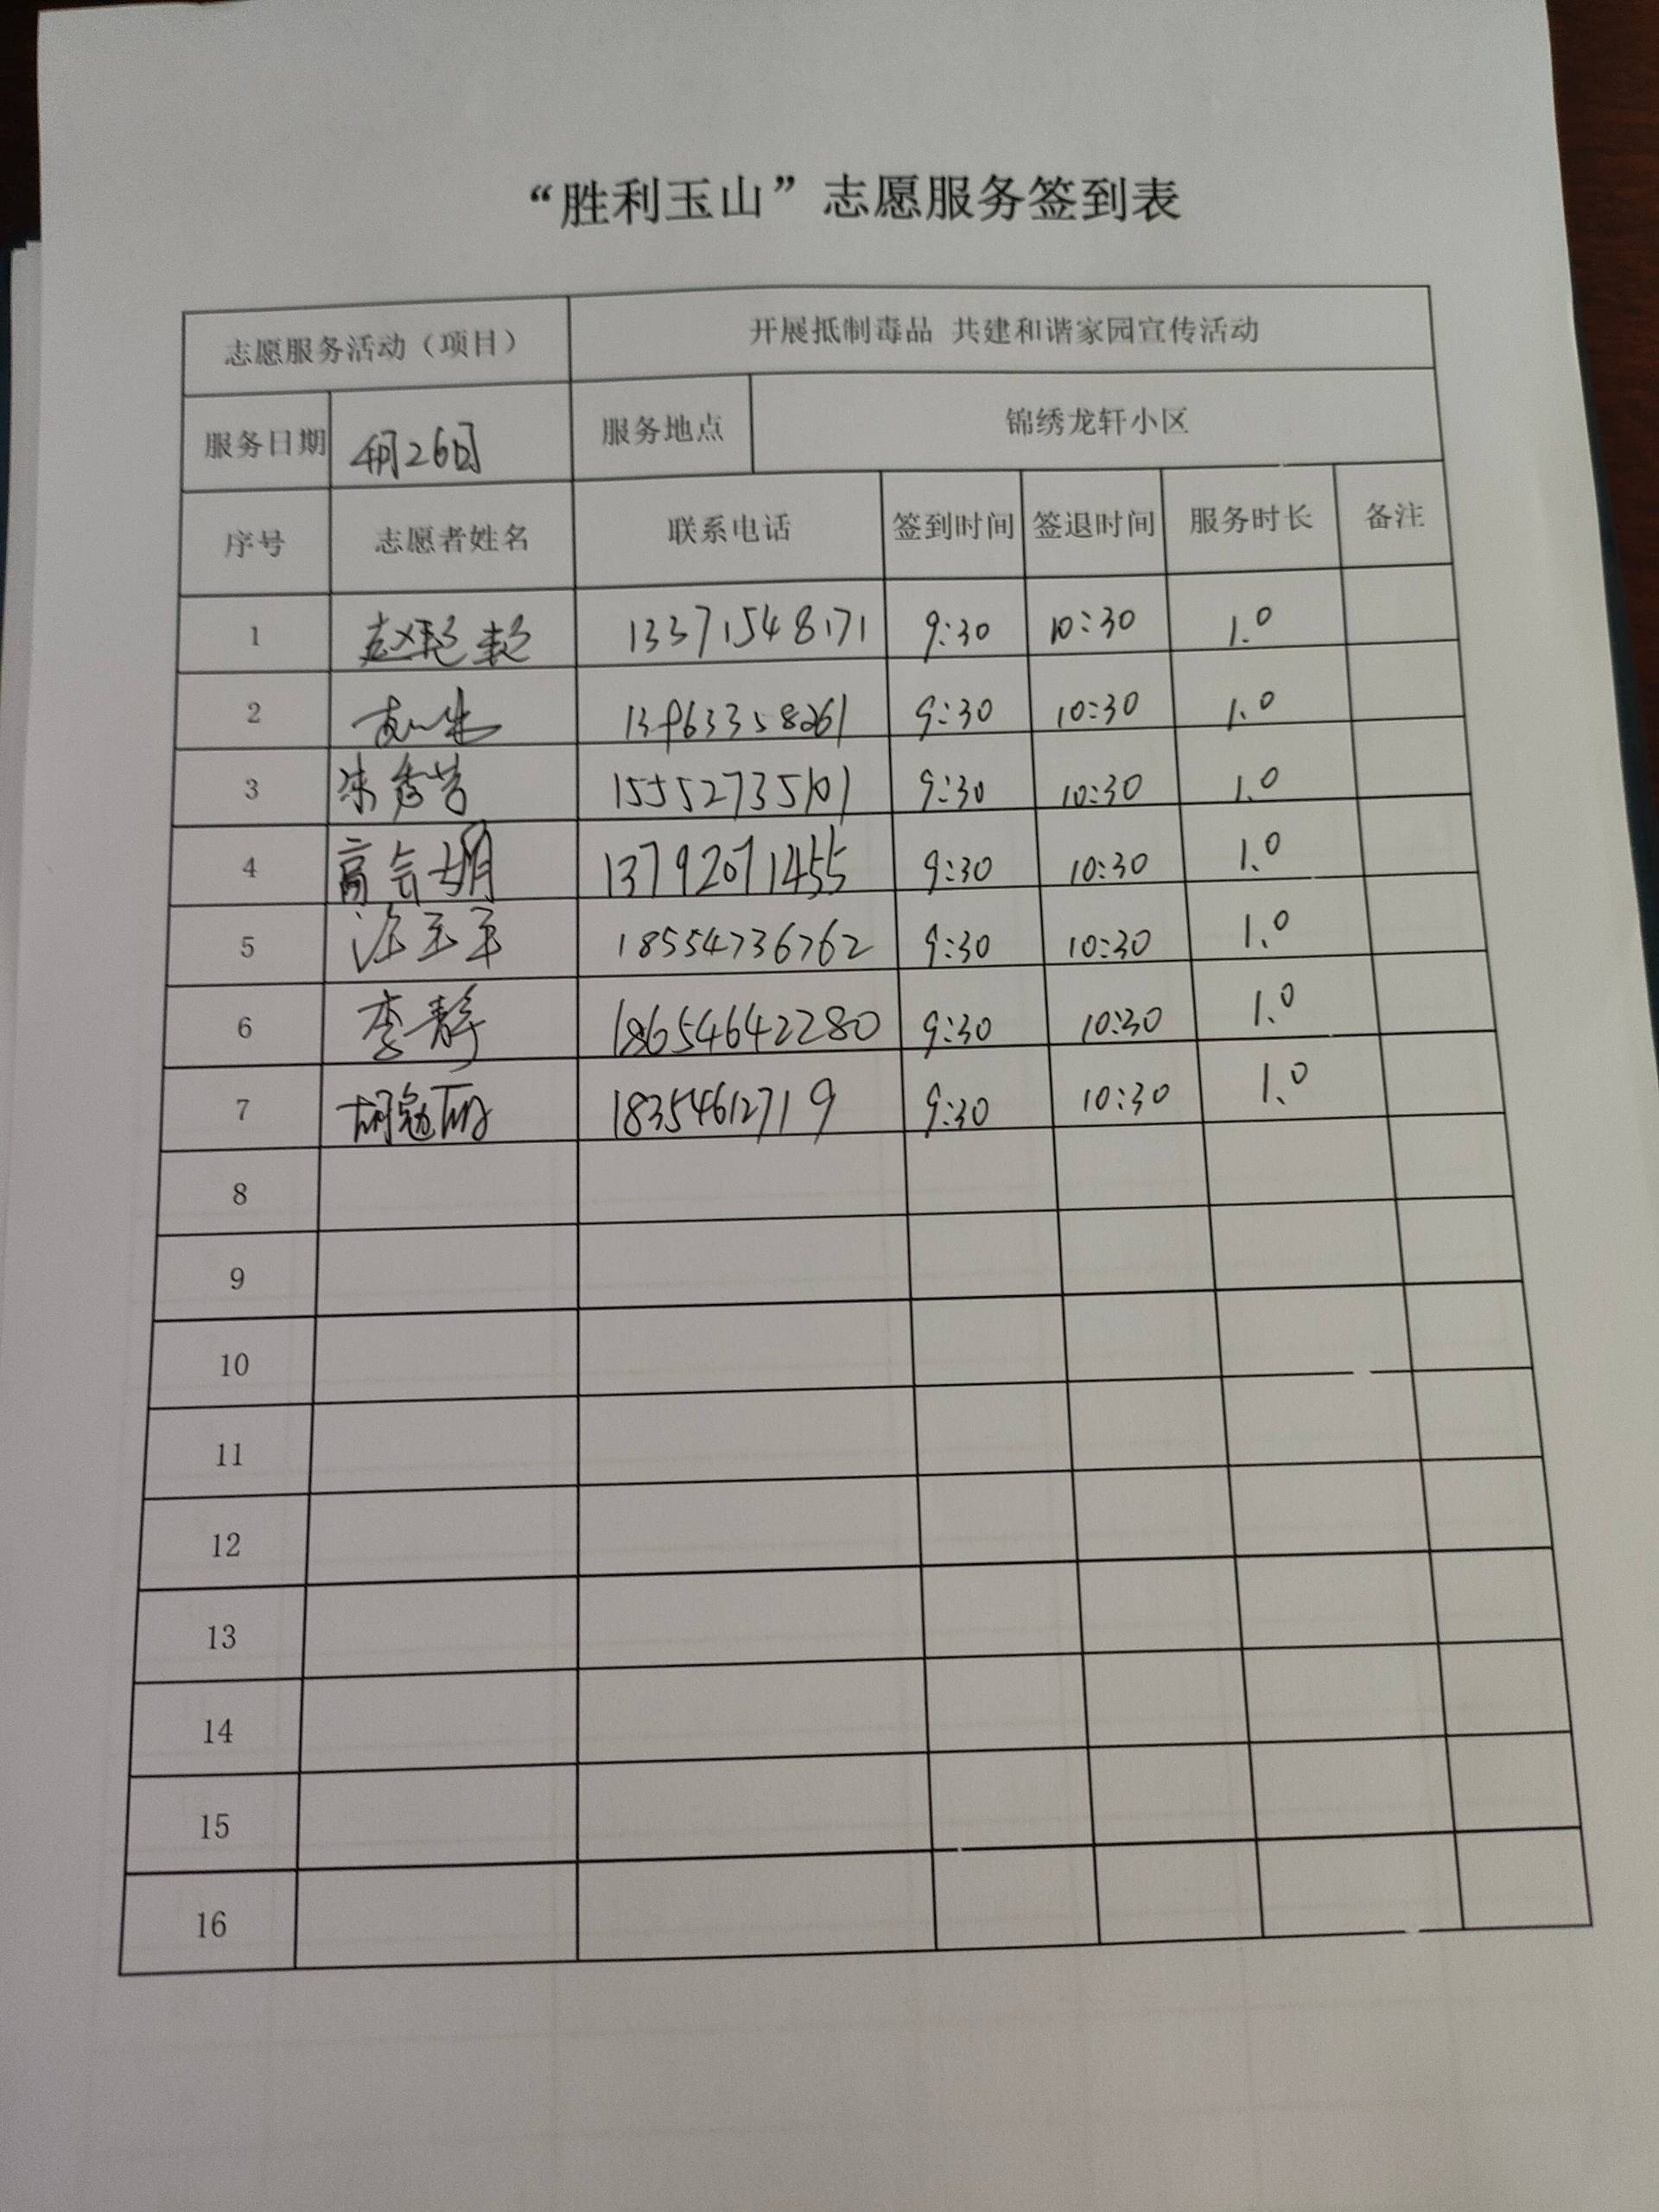 “胜利玉山”志愿服务签到表
志愿服务活动（项目） 开展抵制毒品 共建和谐家园宣传活动
服务日期 4月26日 服务地点 锦绣龙轩小区
序号 志愿者姓名 联系电话 签到时间 签退时间 服务时长 备注
1 13371548171 9:30 10:30 1.0
2 13963358261 9:30 10:30 1.0
3 15552735101 9:30 10:30 1.0
4 高会娟 13792071455 9:30 10:30 1.0
5 18554736762 9:30 10:30 1.0
6 李静 18654642280 9:30 10:30 1.0
7 18354612719 9:30 10:30 1.0
8
9
10
11
12
13
14
15
16